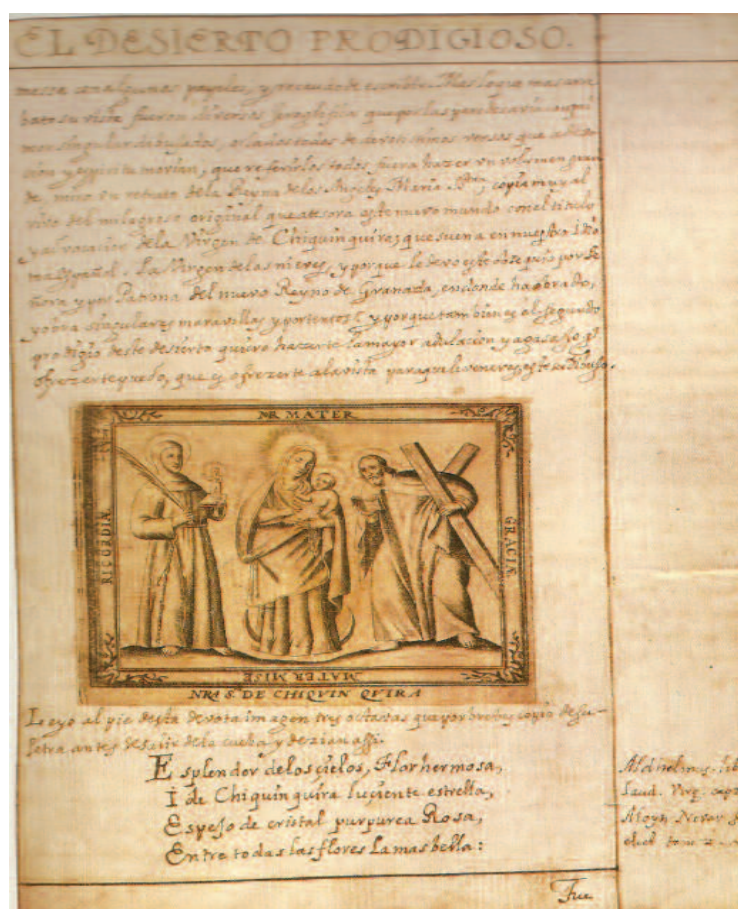 EL DESIERTO PRODIGIOSO.
messa con algunos papeles, y recaudo de escrivir. Mas lo que mas arre
bato su vista fueron diversos que por las paredes avia con pri
mor singular dibujados, adornados todos de devotissimos versos que a devo
cion y espiritu movian, que referirlos todos fuera hazer un volumen gran
de, miro un retrato de la Reyna de los Angeles Maria S.ma, copia muy al
vivo del milagroso original que atesora este nuevo mundo con el titulo
y advocacion de la Virgen de Chiquinquira, que suena en nuestro Idio
ma Español. La Virgen de las nieves, y porque le devo este obsequio por Se
ñora y por Patrona del nuevo Reyno de Granada, en donde ha obrado,
y obra singulares maravillas y portentos, y porque tambien es el segundo
prodigio deste desierto quiero hazerte la mayor adulacion y agasajo q
ofrezerte puedo, que es ofrezerte a la vista para que le veneres este su dibujo.
NR MATER
RICORDIÆ
GRACIÆ
MATER MISE
NRA S. DE CHIQVIN QVIRA
Leyo al pie desta devota imagen tres octavas que por breves copio de su
letra antes de salir de la cueba y dezian assi.
Esplendor de los çielos, Flor hermosa,
I de Chiquinquira luçiente estrella,
Espejo de cristal purpurea Rosa,
Entre todas las flores la mas bella:
Fue
Aldhelmus. lib
Laud. Virg. cap